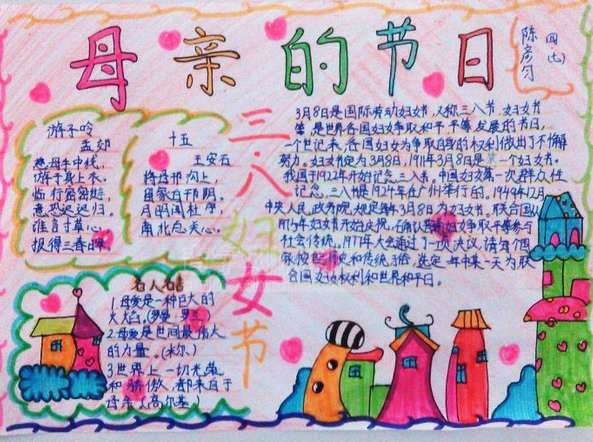 母亲的节日
陈彦匀
四(七)
三八妇女节
游子吟
孟郊
慈母手中线，
游子身上衣。
临行密密缝，
意恐迟迟归。
谁言寸草心，
报得三春晖
十五
王安石
将母邗沟上，
留家白邗阴。
月明闻杜宇，
南北总关心。
3月8日是国际劳动妇女节，又称三八节 妇女节
等，是世界各国妇女争取和平、平等、发展的节日，
一个世纪来，各国妇女为争取自身的权利做出了不懈
努力。妇女节定为3月8日，1911年3月8日是第一个妇女节。
我国于1922年开始记念三八来。中国妇女第一次群众性
记念三八节是1924年在广州举行的。1949年12月
中央人民政务院规定每年3月8为妇女节。联合国从
1975年妇女节开始庆祝，
社会传统。1977年大会通过了一项决议，请每个国
家按照历史和传统习俗，选定一年中某一天为联
合国妇女权利和世界和平日。
名人名言
1.母爱是一种巨大的
火焰。(罗曼·罗兰)
2.母爱是世间最伟大
的力量。(米尔)
3世界上一切光荣
和骄傲，都来自于
母亲。(高尔基)